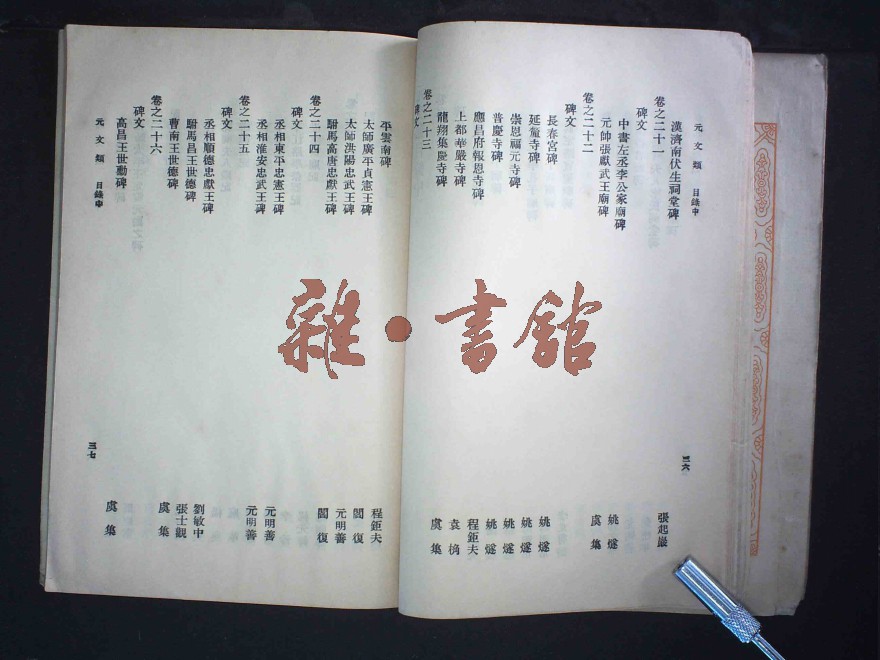 元文類 目錄中 三六
漢濟南伏生祠堂碑 張起巖
卷之二十一
碑文
中書左丞李公家廟碑 姚燧
元帥張獻武王廟碑 虞集
卷之二十二
碑文
長春宮碑 姚燧
延釐寺碑 姚燧
崇恩福元寺碑 姚燧
普慶寺碑 姚燧
應昌府報恩寺碑 程鉅夫
上都華嚴寺碑 袁桷
龍翔集慶寺碑 虞集
卷之二十三
碑文
平雲南碑 程鉅夫
太師廣平貞憲王碑 閻復
太師淇陽忠武王碑 元明善
駙馬高唐忠獻王碑 閻復
卷之二十四
碑文
丞相東平忠憲王碑 元明善
丞相淮安忠武王碑 元明善
卷之二十五
碑文
丞相順德忠獻王碑 劉敏中
駙馬昌王世德碑 張士觀
曹南王世德碑 虞集
卷之二十六
碑文
高昌王世勳碑 虞集
元文類 目錄中 三七
雜·書館